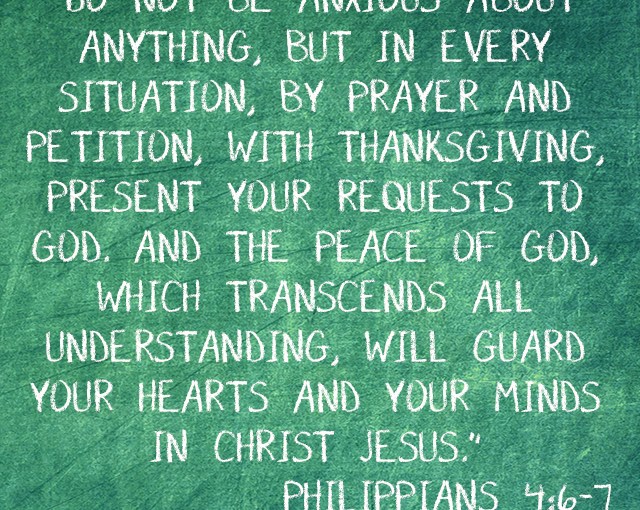 DO NOT BE ANXIOUS ABOUT
ANYTHING, BUT IN EVERY
SITUATION, BY PRAYER AND
PETITION, WITH THANKSGIVING,
PRESENT YOUR REQUESTS TO
GOD. AND THE PEACE OF GOD,
WHICH TRANSCENDS ALL
UNDERSTANDING, WILL GUARD
YOUR HEARTS AND YOUR MINDS
IN CHRIST JESUS."
PHILIPPIANS 4:6-7